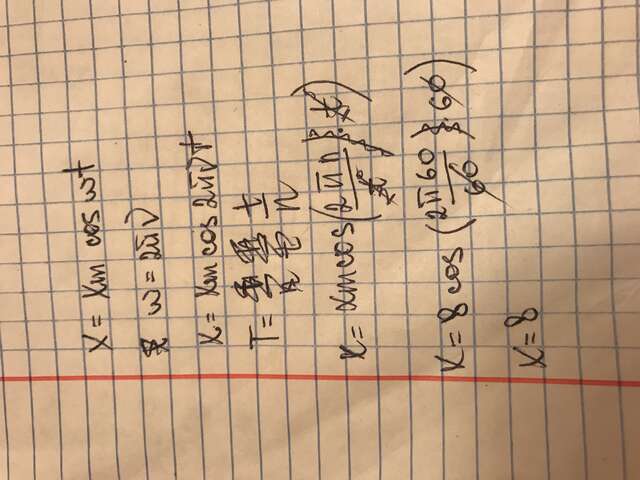 x = xm cos wt
w = 2πν
x = xm cos 2πνt
T = t/n
x = xm cos (2πn/t · t)
x = 8 cos (2π60/60 · 60)
x = 8